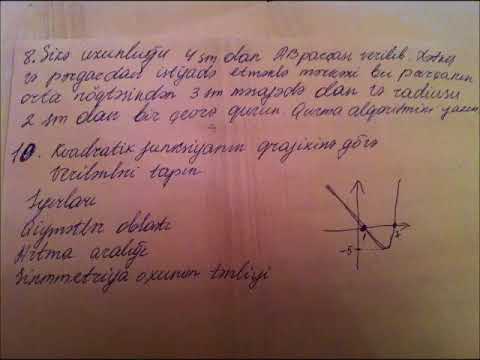 8. Sizə uzunluğu 4 sm olan AB parçası verilib. Xətkeş
və pərgardan istifadə etməklə mərkəzi bu parçanın
orta nöqtəsindən 3 sm məsafədə olan və radiusu
2 sm olan bir çevrə qurun. Qurma alqoritmini yazın
10. Kvadratik funksiyanın qrafikinə görə
verilənləri tapın
Sıfırları
Qiymətlər oblastı
Artma aralığı
Simmetriya oxunun tənliyi
1
7
-5